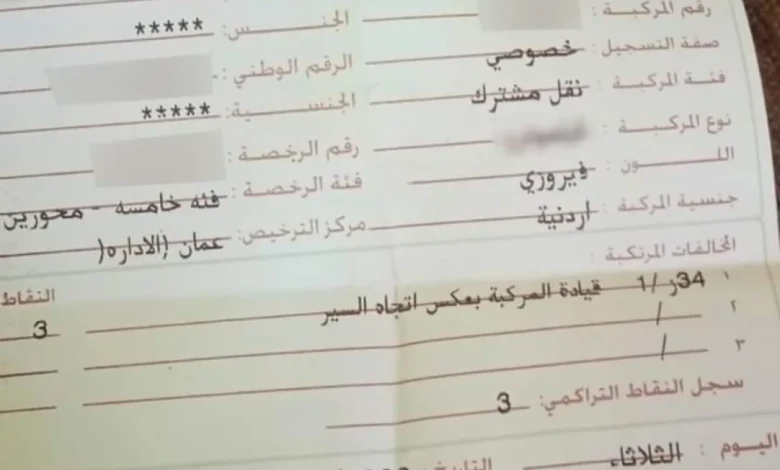 رقم المركبة :
الجنس : *****
صفة التسجيل : خصوصي
الرقم الوطني :
فئة المركبة : نقل مشترك
الجنسية : *****
نوع المركبة :
رقم الرخصة :
اللون : فيروزي
فئة الرخصة : فئه خامسه - محورين
جنسية المركبة : اردنية
مركز الترخيص: عمان (الاداره(
المخالفات المرتكبة :
النقاط
١ 34ر /1 قيادة المركبة بعكس اتجاه السير 3
٢ /
٣ /
سجل النقاط التراكمي: 3
اليوم : الثلاثاء التاريخ